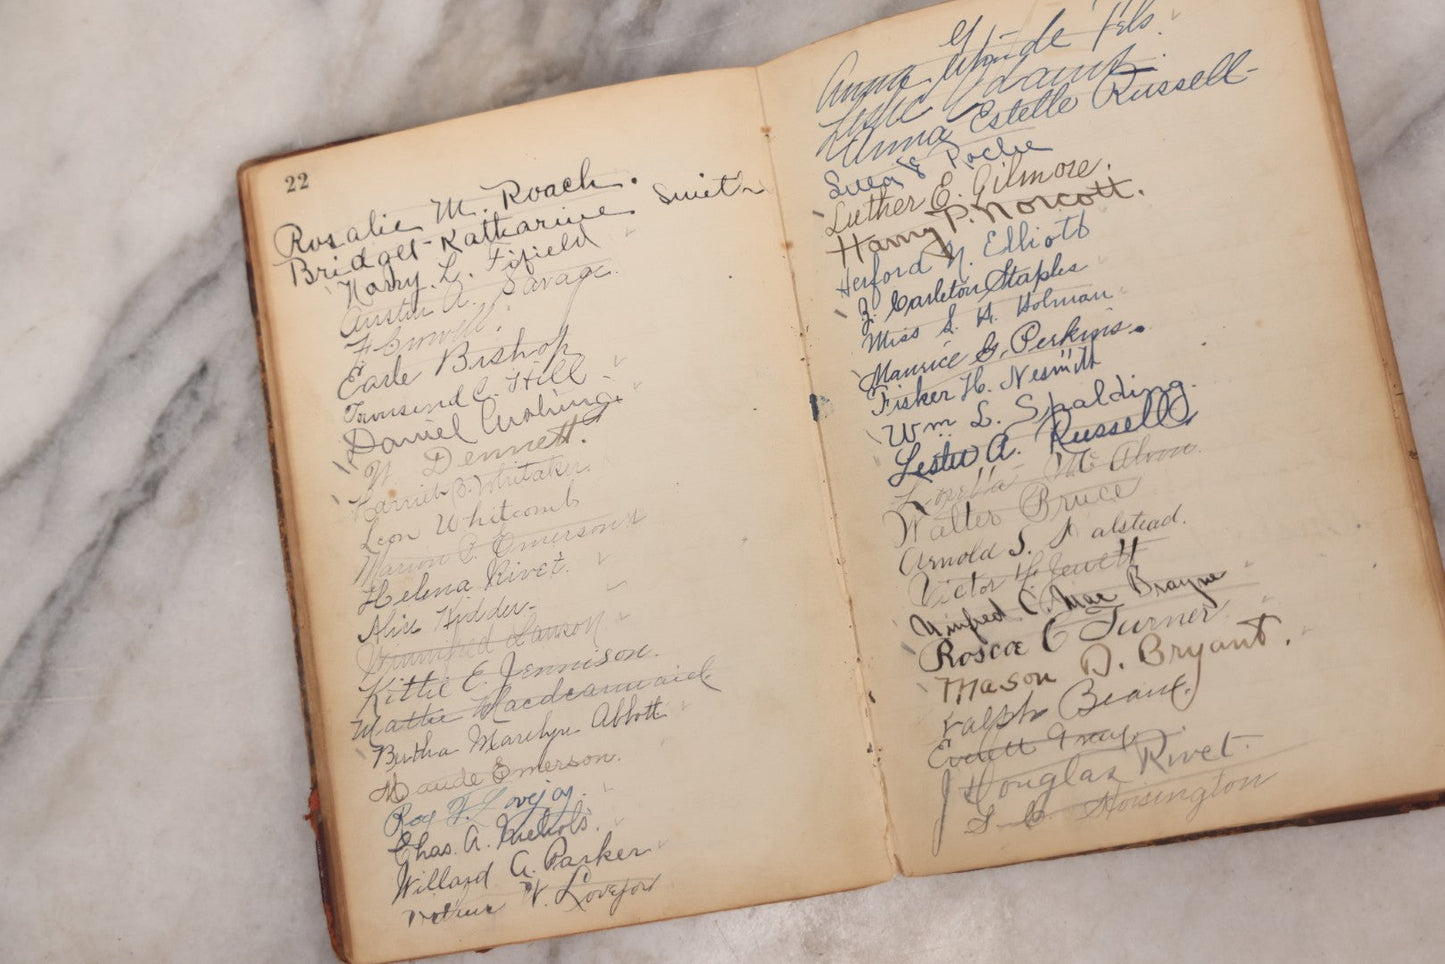 22
Rosalie M. Roach.
Bridget Katharine Smith
Harry. L. Fifield
Austin A. Savage.
F Crowell.
Earle Bishop
Townsend C. Hill
Daniel Cushing.
W Dennett.
Harriet B. Whitaker
Leon Whitcomb
Marion P. Emerson
Helena Rivet.
Alice Kidder
Winnifred Lawson
Kittie E. Jennison.
Mattie
Bertha Marilyn Abbott
Maude Emerson.
Roy F. Lovejoy.
Chas. A. Nichols.
Willard A. Parker
W. Lovejoy
Anna
Leslie
Anna Estelle Russell
Luther E. Gilmore.
Harry P. Norcott.
Herford N. Elliott
J. Carleton Staples
Miss S. H. Holman
Maurice G. Perkins.
Fisker H. Nesmitt
Wm L. Spalding.
Lester A. Russell
Loretta McAlvon.
Walter Bruce
Arnold S. Halstead.
Victor H. Jewett
Winfred C. Mac Brayne
Roscoe C Turner
Mason D. Bryant.
Ralph Beane.
Everett
J Douglas Rivet.
Horsington